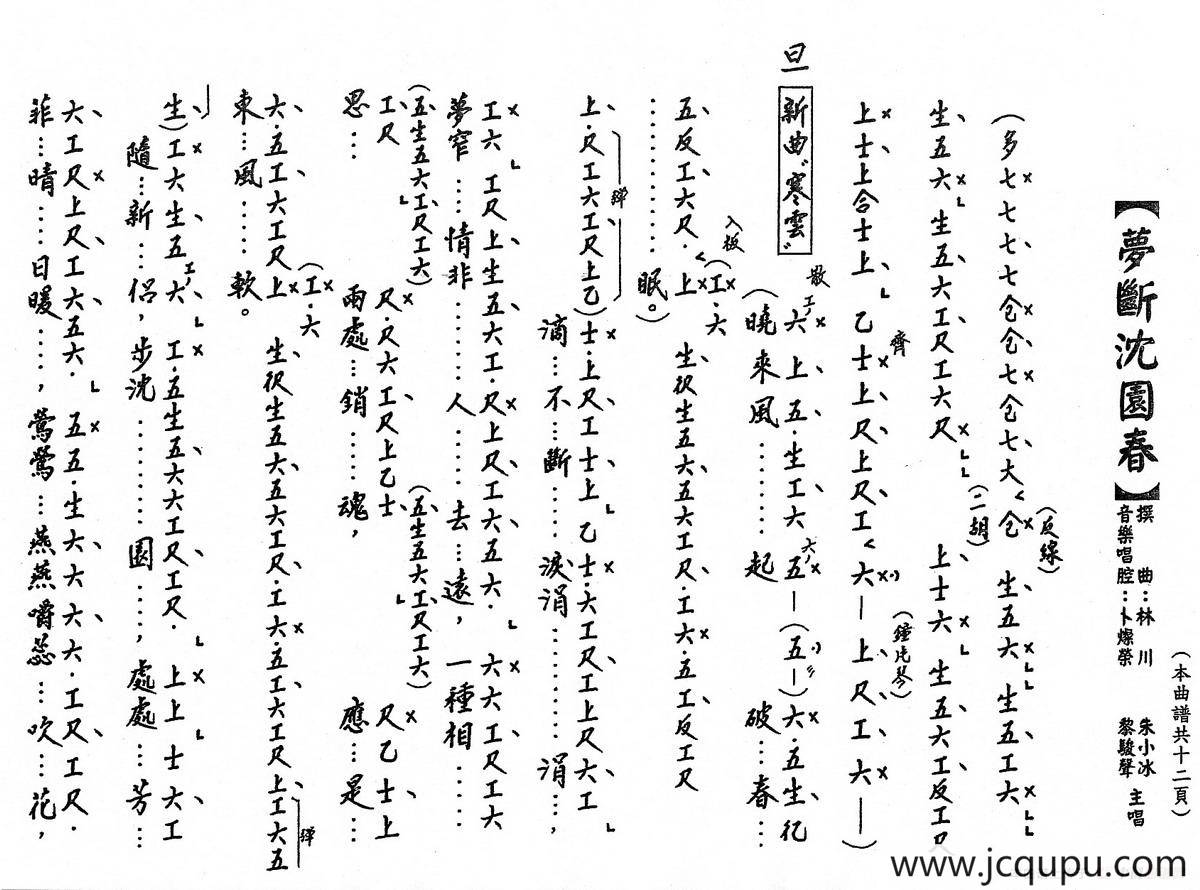 （本曲譜共十二頁）
【夢斷沈園春】
撰曲：林川　朱小冰
音樂唱腔：卜燦榮　黎駿聲 主唱
（反線）
（多七七七七仓仓七仓七大仓 生五六 生五工六
生五六 生五六工尺工六尺（二胡） 上士六 生五六工反工尺
（鐘片琴）
上士上合士上 乙士上尺上尺工 六—上尺工六—）
齊
旦 新曲“寒雲” 散 工六上五生工六 六五—（五—）六·五生㐸
（曉來風……起 破…春…
入板
五反工六尺·上（工·六 生㐸生五六五六工尺·工六·五工反工尺
………眠。）
彈
上·尺工六工尺上乙）士·上尺工士上 乙士·六工尺工上尺六工
滴…不…斷 淚涓………涓…，
工六 工尺上生五六工·尺上尺工六五六· 六六工尺工六
夢窄…情非……人……去…遠，一種相…
（五生五六工尺工六） （五生五六工尺工六）
工尺 尺·尺六工尺上乙士 尺乙士上
思… 兩處…銷…魂， 應…是…
六·五工六工尺上（工·六 生㐸生五六五六工尺·工六·五工六工尺上工六五
彈
東…風……軟。
生）工六生五工六 工·五生五六六工尺工尺· 上上士六工
隨…新…侶，步沈………園……，處處…芳…
六工尺上尺工六五六· 五五·生六六六六·工尺工尺·
菲…晴……日暖……，鶯鶯…燕燕嚼蕊…吹…花，
www.jcqupu.com